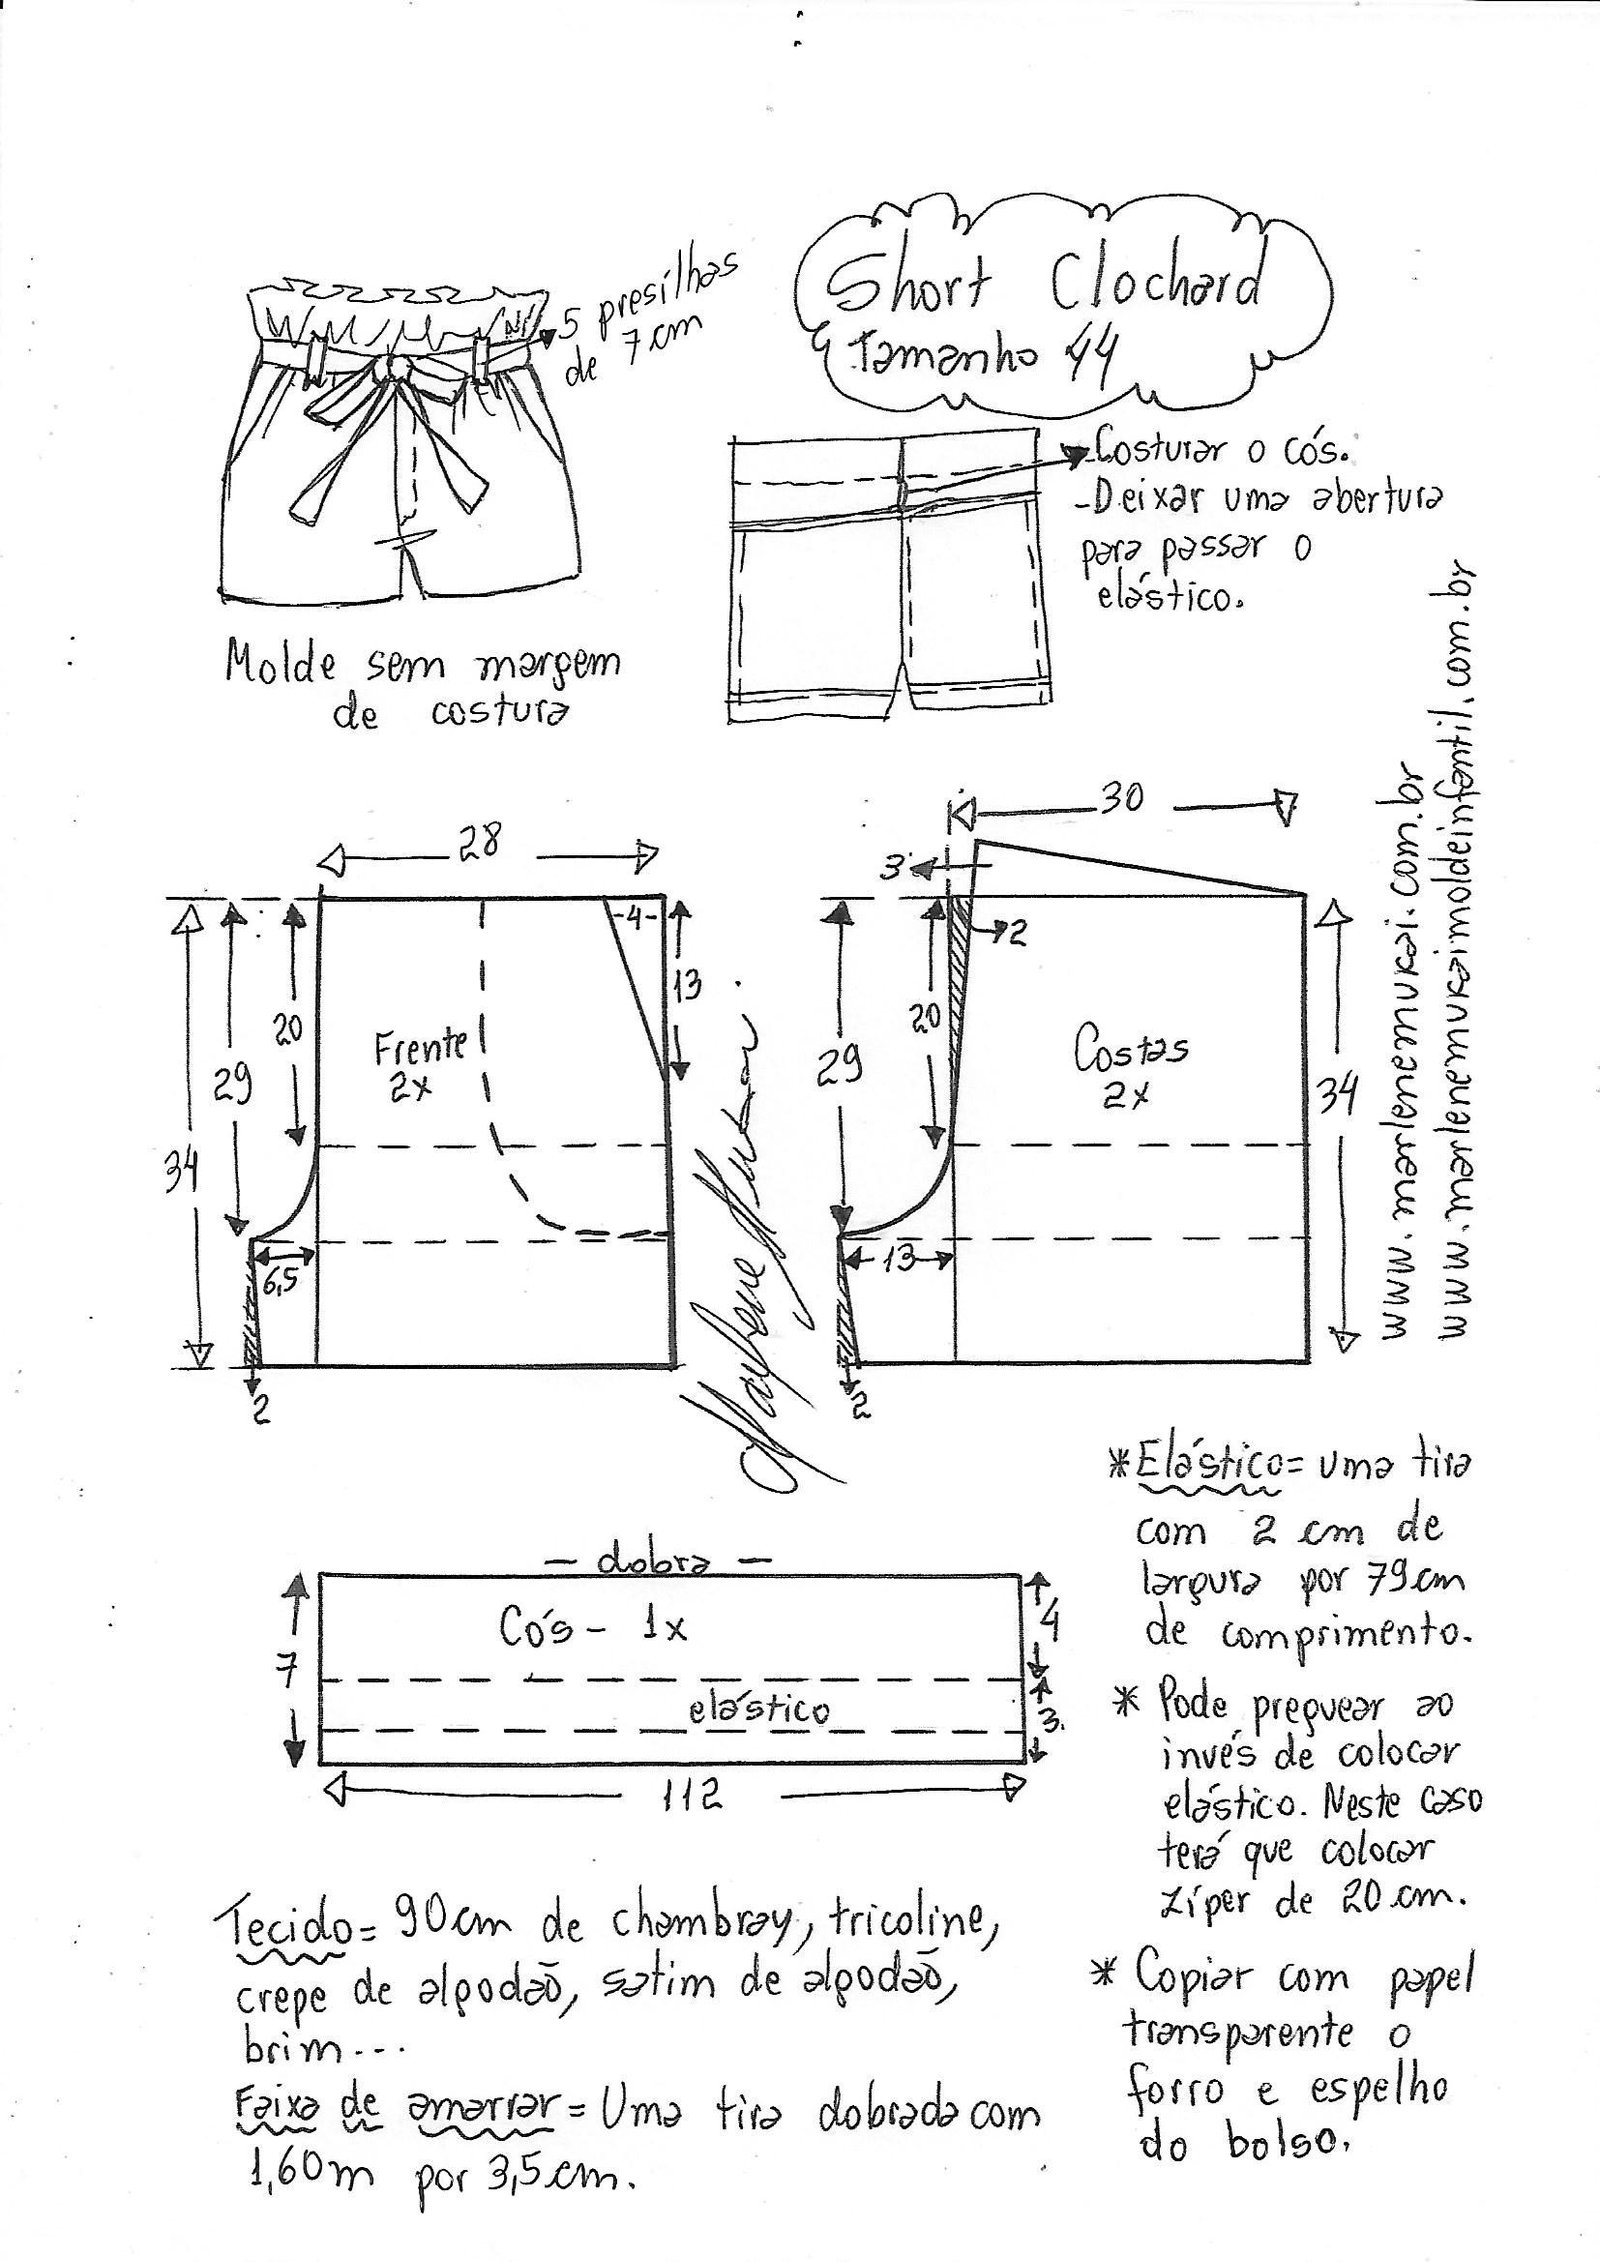 Short Clochard
Tamanho 44
5 presilhas
de 7cm
-Costurar o cós.
-Deixar uma abertura
para passar o
elástico.
Molde sem margem
de costura
www.marlenemukai.com.br
www.marlenemukaimoldeinfantil.com.br
28
4
13
20
29
34
Frente
2x
6,5
2
30
3
2
20
29
34
Costas
2x
13
2
- dobra -
Cós - 1x
elástico
7
4
3
112
*Elástico= uma tira
com 2 cm de
largura por 79cm
de comprimento.
* Pode preguear ao
invés de colocar
elástico. Neste caso
terá que colocar
zíper de 20 cm.
* Copiar com papel
transparente o
forro e espelho
do bolso.
Tecido= 90cm de chambray, tricoline,
crepe de algodão, satim de algodão,
brim...
Faixa de amarrar= Uma tira dobrada com
1,60m por 3,5cm.